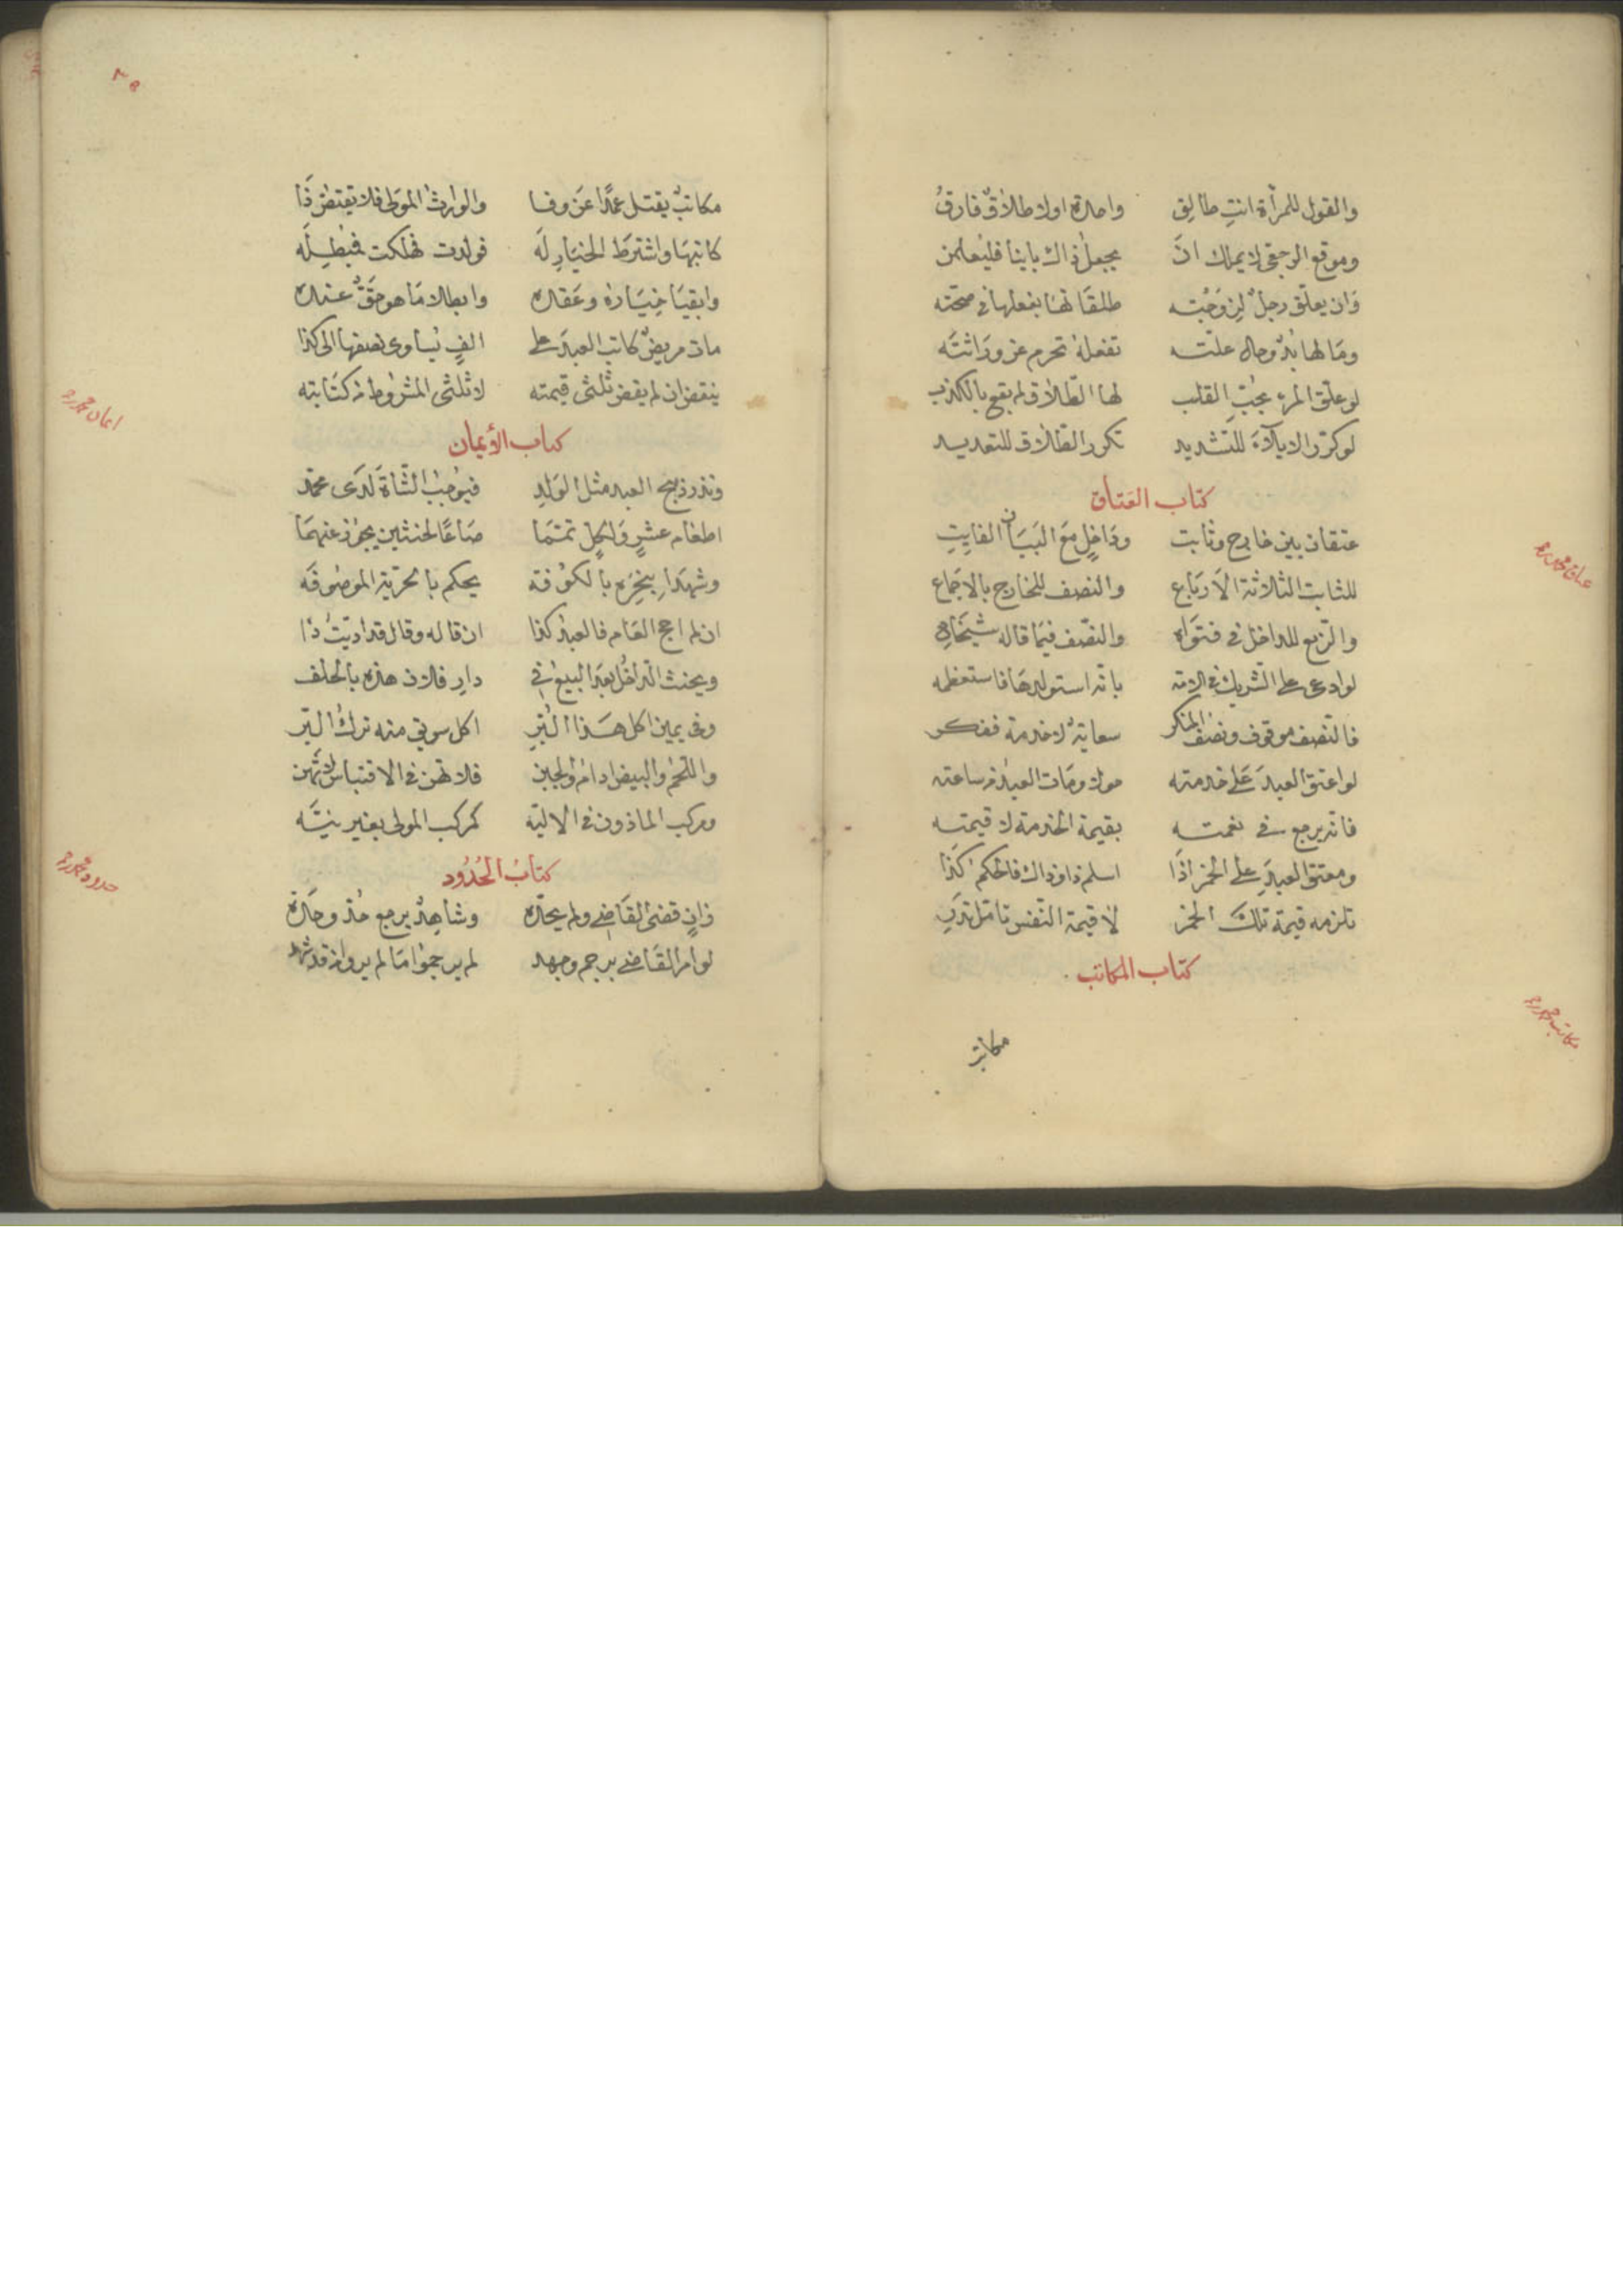 والقول للمرأة انتِ طالِق واحدة اولا طلاقٌ فارقُ
وموقع الرجعى لا يملك انَ يجعل ذاك باينا فليُعلمن
وَان يعلّق رجلٌ لزِوَجْته طلقَاتها بفعلها في صحّته
ومَا لها بدٌّ وحال علّته تفعلهُ تحرم عن ورَاثته
لو علّق المرء بحُبِّ القلب لها الطّلاق لم يقع بالكذب
لو كرّر الايلاءَ للتّشديد تكرر الطّلاق للتعديد
كتاب العَتاق
عتقان بين خارج وثابت ودَاخلٍ مَع البَيَان الفايتِ
للثابت الثلاثة الأرباع والنصف للخارج بالاجماع
والرّبع للداخل في فتوَاه والنصّف فيمَا قاله شيخاه
لو ادعى على الشّريك في الامة بانّه استولدهَا فاستعظمه
فالنّصف موقوف ونصف المنكر سعايةٌ لا خدمة ففكر
لو اعتق العبدَ عَلى خدمته مولاه ومَات العبد من ساعته
فانه يرجع في نغمته بقيمة الخدمة لا قيمته
ومعتق العبدِ على الخمر اذَا اسلم ذا وذاك فالحكم كَذا
تلزمه قيمة تلكَ الخمر لا قيمة النّفس تامّل تدرِ
كتاب المكاتب
مكاتب
عتاق محمد ره
مكاتب محمد ره
مكاتبٌ يقتل عمدًا عَن وفا والوارث المَولى فلا يقتصّ ذَا
كاتبهَا واشترَط الخيَارِ لَه فولدت فهلكت فمُبْطِلَه
وابقيَا خِيَارهُ وعَقده وابطلا مَا هو حَقٌّ عنده
مات مريضٌ كاتب العبدَ على الفٍ يُساوى نصفها الى كذا
ينقض ان لم يقض ثلثى قيمته لا ثلثى المشروط من كتَابته
كتاب الأيمان
ونذر ذبح العبد مثل الوَلدِ فيُوجبُ الشّاةَ لدَى محمّد
اطعَام عشرٍ وَلكلٍ تمّمَا صَاعًا لحنثين يجوز عنهمَا
وشهدَا بنَحْرِه بالكوُفة يحكم بالحريّة الموصُوفَه
ان لم احج العَام فالعبدُ كذا ان قاله وقال قد ادّيتُ ذا
ويحنث الدّاخل بعَد البيع في دارِ فلان هذه بالحلف
وفى يمين اكل هَذا البُرِّ اكل سويق منه ترك البرّ
واللّحم والبيض ادامٌ والجبن فلا تهن في الاقتباس لا تهن
ومركب الماذون في الاليّه كمركب المولى بغير نيّه
كتابُ الحُدُود
زانٍ قضى القَاضي ولم يحدّه وشاهدٌ يرجع حُدّ وحدَه
لو امر القَاضي برجم وجهد لم يرجموا مَا لم يروا من قد شهد
ايمان محمد ره
حدود محمد ره